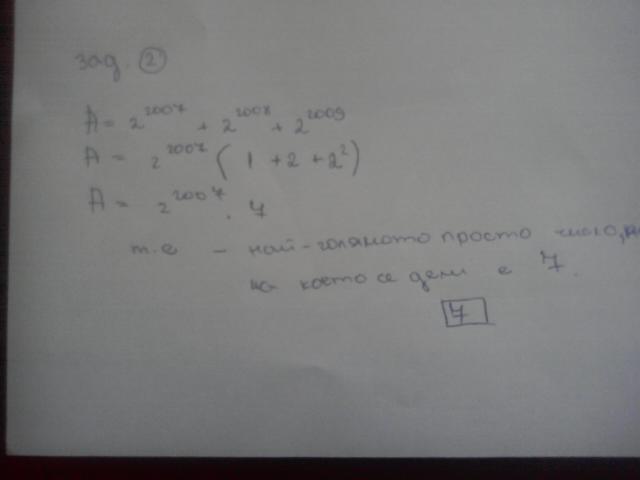 зад. 2
A = 2^2007 + 2^2008 + 2^2009
A = 2^2007 ( 1 + 2 + 2^2 )
A = 2^2007 . 7
т.е – най-голямото просто число,
на което се дели е 7.
7